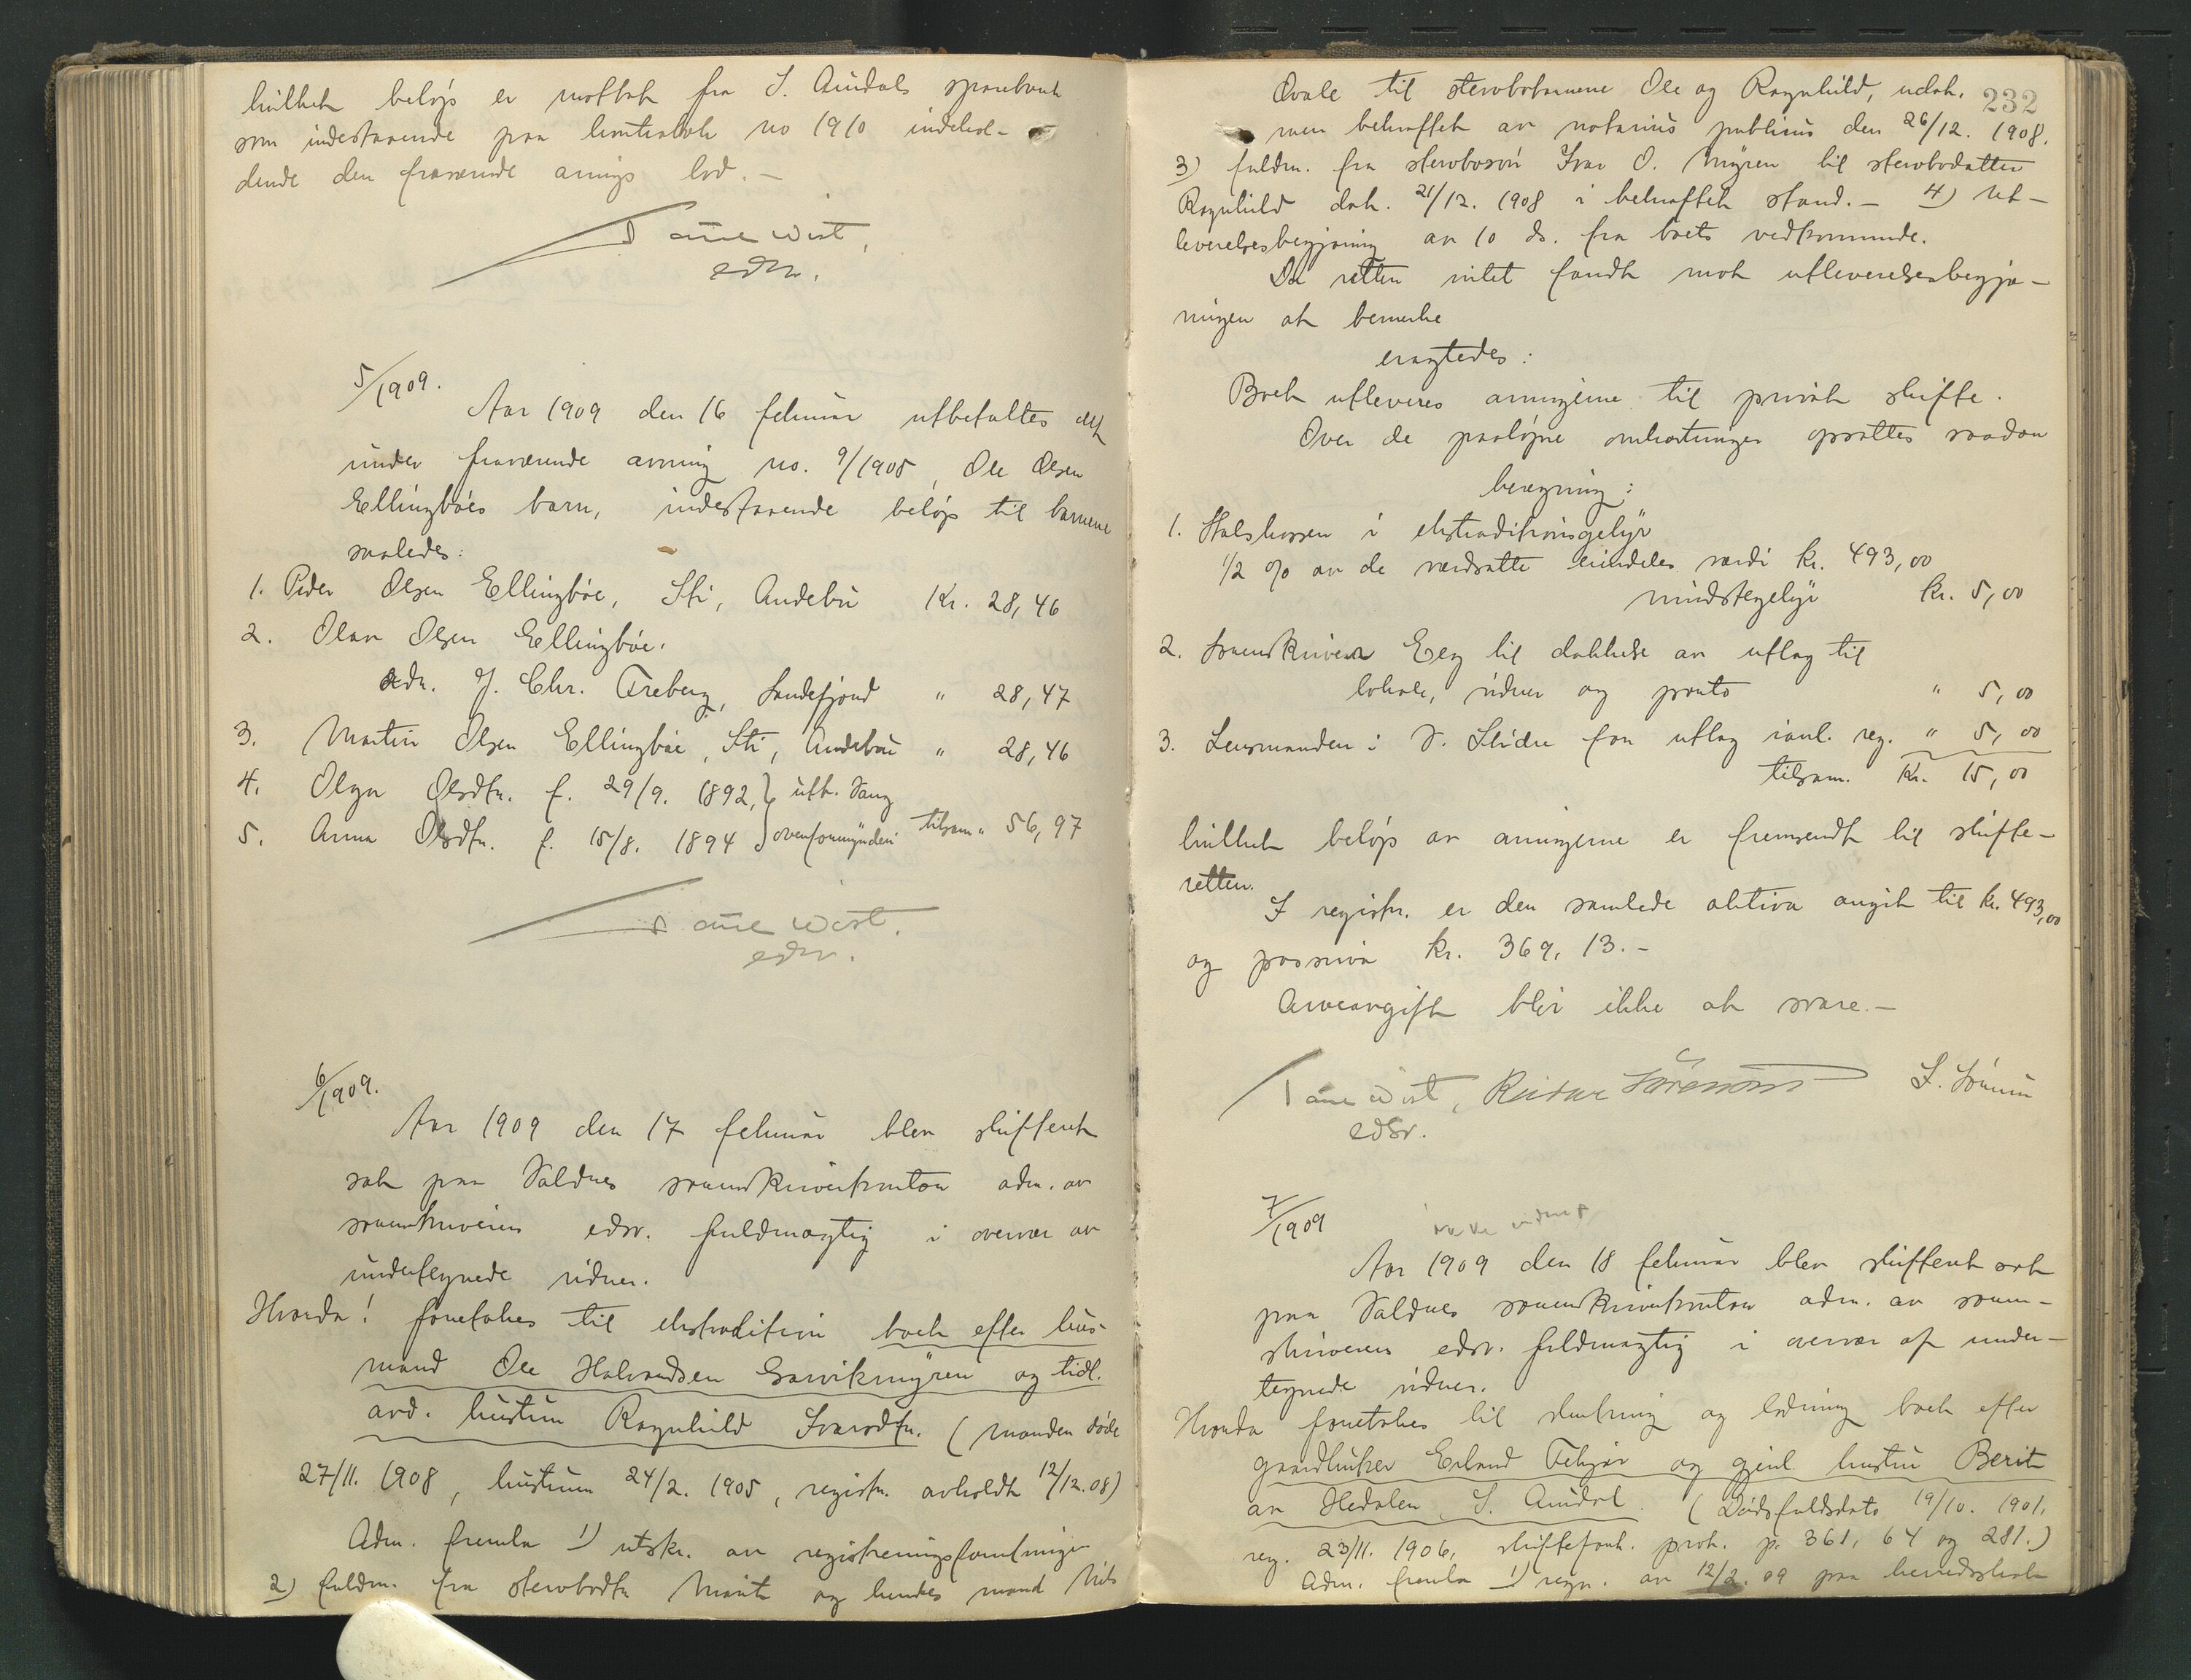 hvilket beløp er mottat fra S. Aurdals sparebank
som indestaaende paa kontrabok no 1910 indehol-
dende den fraværende arvings lod. —
Tane Wist,
edsv.
5/1909.
Aar 1909 den 16 februar utbetaltes det
under fraværende arving no. 9/1905, Ole Olsen
Ellingbøes barn, indestaaende beløp til barnene
saaledes:
1. Peder Olsen Ellingbøe, Sti, Andebu Kr. 28,46
2. Olav Olsen Ellingbøe.
adr. J. Chr. Freberg, Sandefjord " 28,47
3. Martin Olsen Ellingbøe, Sti, Andebu " 28,46
4. Olga Olsdtr. f. 29/9. 1892, } utb. Vang
5. Anna Olsdtr. f. 15/8. 1894 } overformynderi tilsam " 56,97
Tane Wist.
edsv.
6/1909.
Aar 1909 den 17 februar blev skifteret
sat paa Valdres sorenskriverkontor adm. av
sorenskriverens edsv. fuldmægtig i overvær av
undertegnede vidner.
Hvorda! foretokes til ekstradition boet efter hus-
mand Ole Halvordsen Garvikmyren og tidl.
avd. hustru Ragnhild Ivarsdtr. (manden døde
27/11. 1908, hustruen 24/2. 1905, registr. avholdt 12/12. 08)
Adm. fremla 1) utskr. av registreringsforretningen
2) fuldm. fra stervbodtr. Marit og hendes mand Nils
232
Qvale til stervbobarnene Ole og Ragnhild, udat.
men bekræftet av notarius publicus den 26/12. 1908.
3) fuldm. fra stervbosøn Ivar O. Myren til stervbodatter
Ragnhild dat. 21/12. 1908 i bekræftet stand. — 4) Ut-
leverelsesbegjæring av 10 ds. fra boets vedkommende.
Da retten intet fandt mot utleverelsesbegjæ-
ringen at bemerke
eragtedes:
Boet utleveres arvingerne til privat skifte.
Over de paaløpne omkostninger opsattes saadan
beregning:
1. Statskassen i ekstraditionsgebyr
1/2 % av de værdsatte eiendeles værdi kr. 493,00
mindstegebyr kr. 5,00
2. Sorenskriver Eeg til dækkelse av utlæg til
lokale, vidner og porto " 5,00
3. Lensmanden i V. Slidre for utlæg ianl. reg. " 5,00
tilsam. Kr. 15,00
hvilket beløp av arvingerne er fremsendt til skifte-
retten.
I registr. er den samlede aktiva angit til kr. 493,00
og passiva kr. 369,13. —
Arveavgift blir ikke at svare. —
Tane Wist, Reidar Sørenssen
edsv.
7/1909
Aar 1909 den 18 februar blev skifteret sat
paa Valdres sorenskriverkontor adm. av soren-
skriverens edsv. fuldmægtig i overvær af under-
tegnede vidner.
Hvorda foretokes til slutning og lodning boet efter
gaardbruker Erland Fekjær og gjenl. hustru Berit
av Hedalen S. Aurdal. (Dødsfaldsdato 19/10. 1901,
reg. 23/11. 1906, skifteforh. prot. p. 361, 64 og 281.)
Adm. fremla 1) regn. av 12/2. 09 paa herredsskat